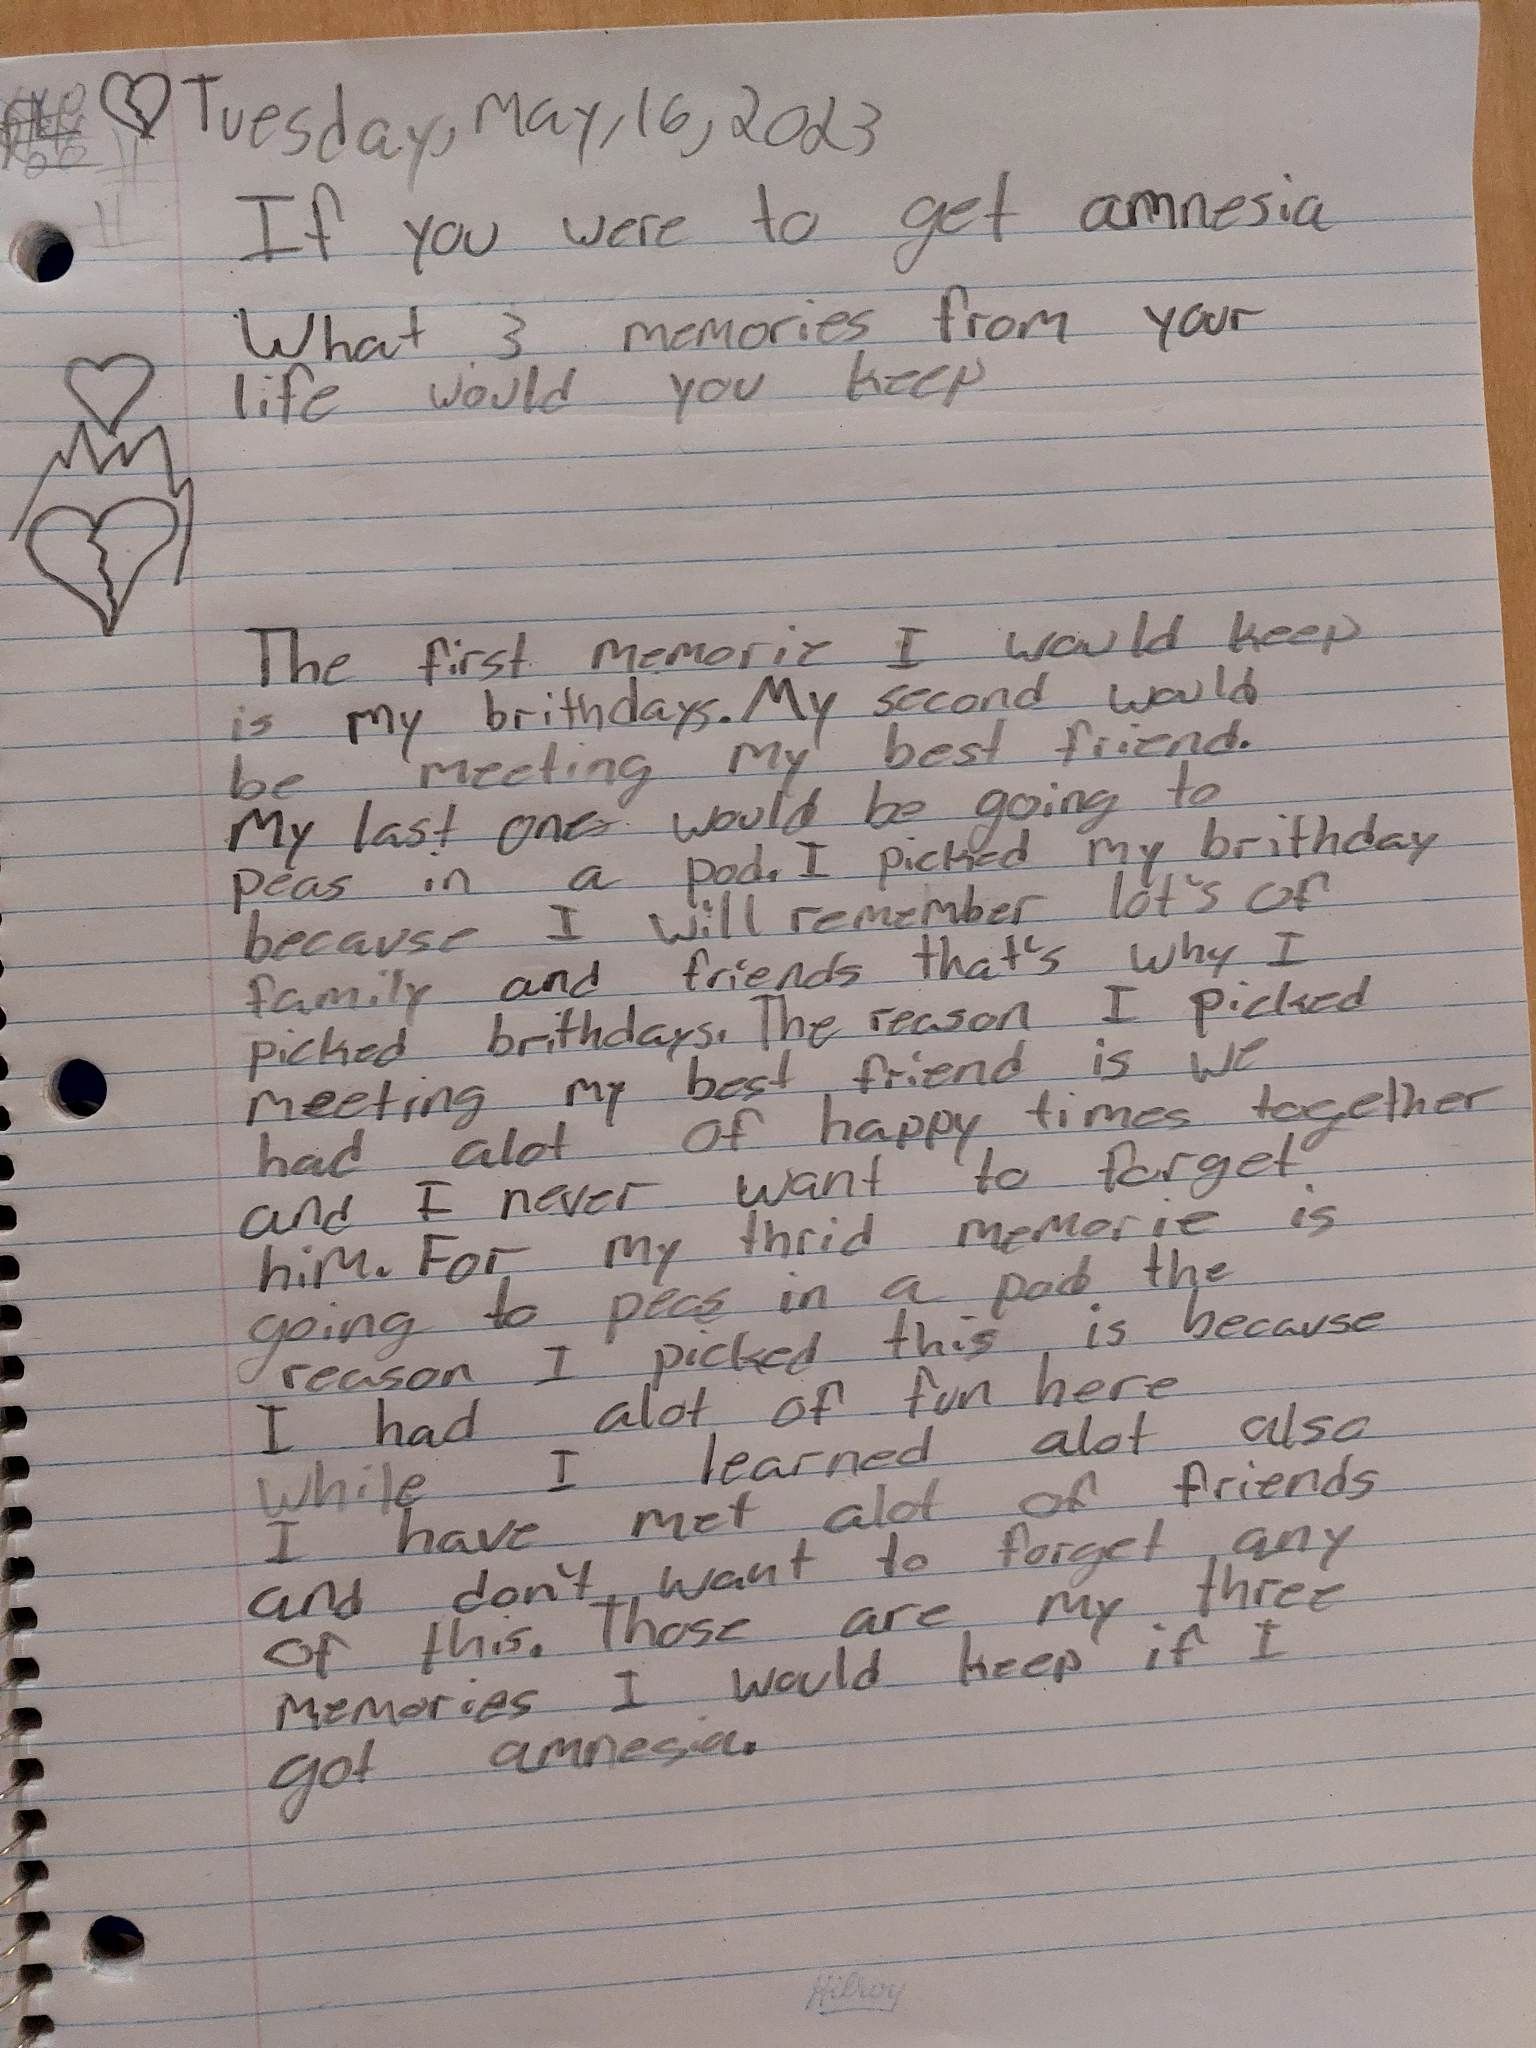 Tuesday, May, 16, 2023
If you were to get amnesia
What 3 memories from your
life would you keep
The first memorie I would keep
is my brithdays. My second would
be meeting my best friend.
My last one would be going to
peas in a pod. I picked my brithday
because I will remember lot's of
family and friends that's why I
picked brithdays. The reason I picked
meeting my best friend is we
had alot of happy times together
and I never want to forget
him. For my thrid memorie is
going to peas in a pod the
reason I picked this is because
I had alot of fun here
while I learned alot also
I have met alot of friends
and don't want to forget any
of this. Those are my three
memories I would keep if I
got amnesia.
Hilroy